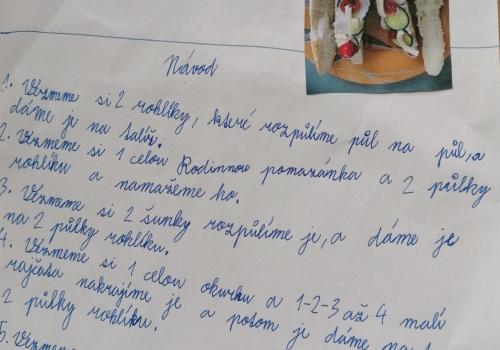 Návod
1. Vezmeme si 2 rohlíky, které rozpůlíme půl na půl, a
dáme je na talíř.
2. Vezmeme si 1 celou Rodinnou pomazánka a 2 půlky
rohlíku a namažeme ho.
3. Vezmeme si 2 šunky rozpůlíme je, a dáme je
na 2 půlky rohlíku.
4. Vezmeme si 1 celou okurku a 1-2-3 až 4 malí
rajčata nakrajíme je a potom je dáme na
2 půlky rohlíku.
5. Vezmeme